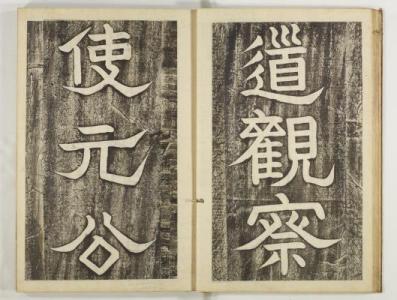 道觀察
使元公